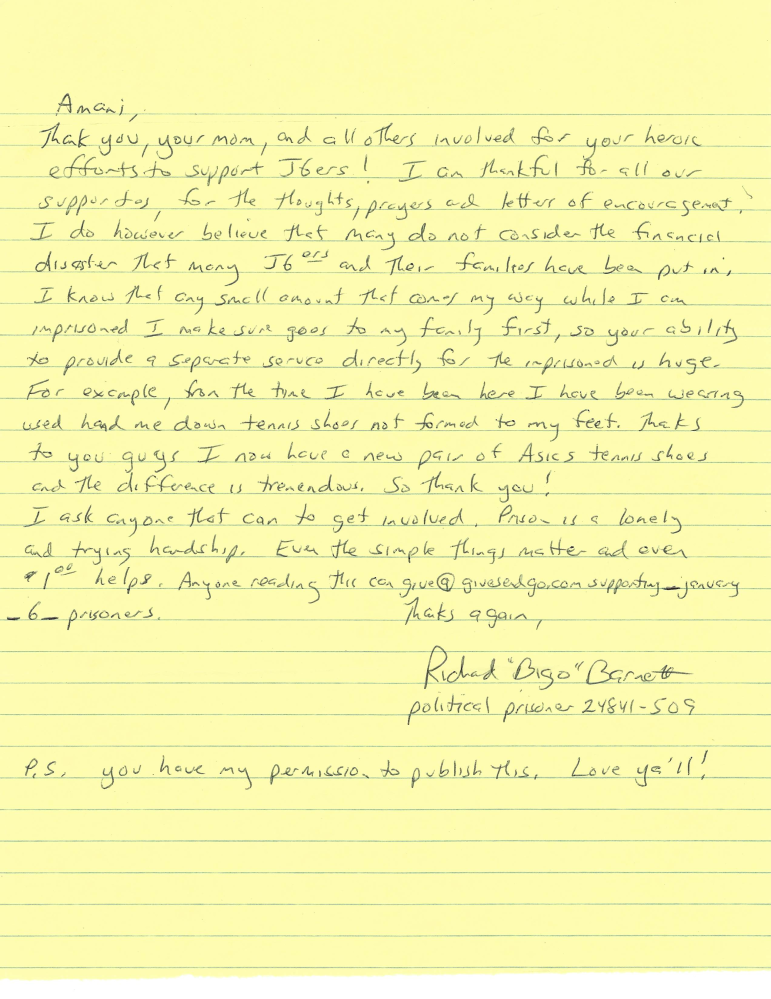 Amani,
Thank you, your mom, and all others involved for your heroic
efforts to support J6ers! I am thankful for all our
supporters, for the thoughts, prayers and letters of encouragement.
I do however believe that many do not consider the financial
disaster that many J6ers and their families have been put in.
I know that any small amount that comes my way while I am
imprisoned I make sure goes to my family first, so your ability
to provide a separate service directly for the imprisoned is huge.
For example, from the time I have been here I have been wearing
used hand me down tennis shoes not formed to my feet. Thanks
to you guys I now have a new pair of Asics tennis shoes
and the difference is tremendous. So thank you!
I ask anyone that can to get involved. Prison is a lonely
and trying hardship. Even the simple things matter and even
$1.00 helps. Anyone reading this can give@ givesendgo.com supporting_january
_6_ prisoners.
Thanks again,
Richard "Bigo" Barnett
political prisoner 24841-509
P.S. you have my permission to publish this. Love ya'll!